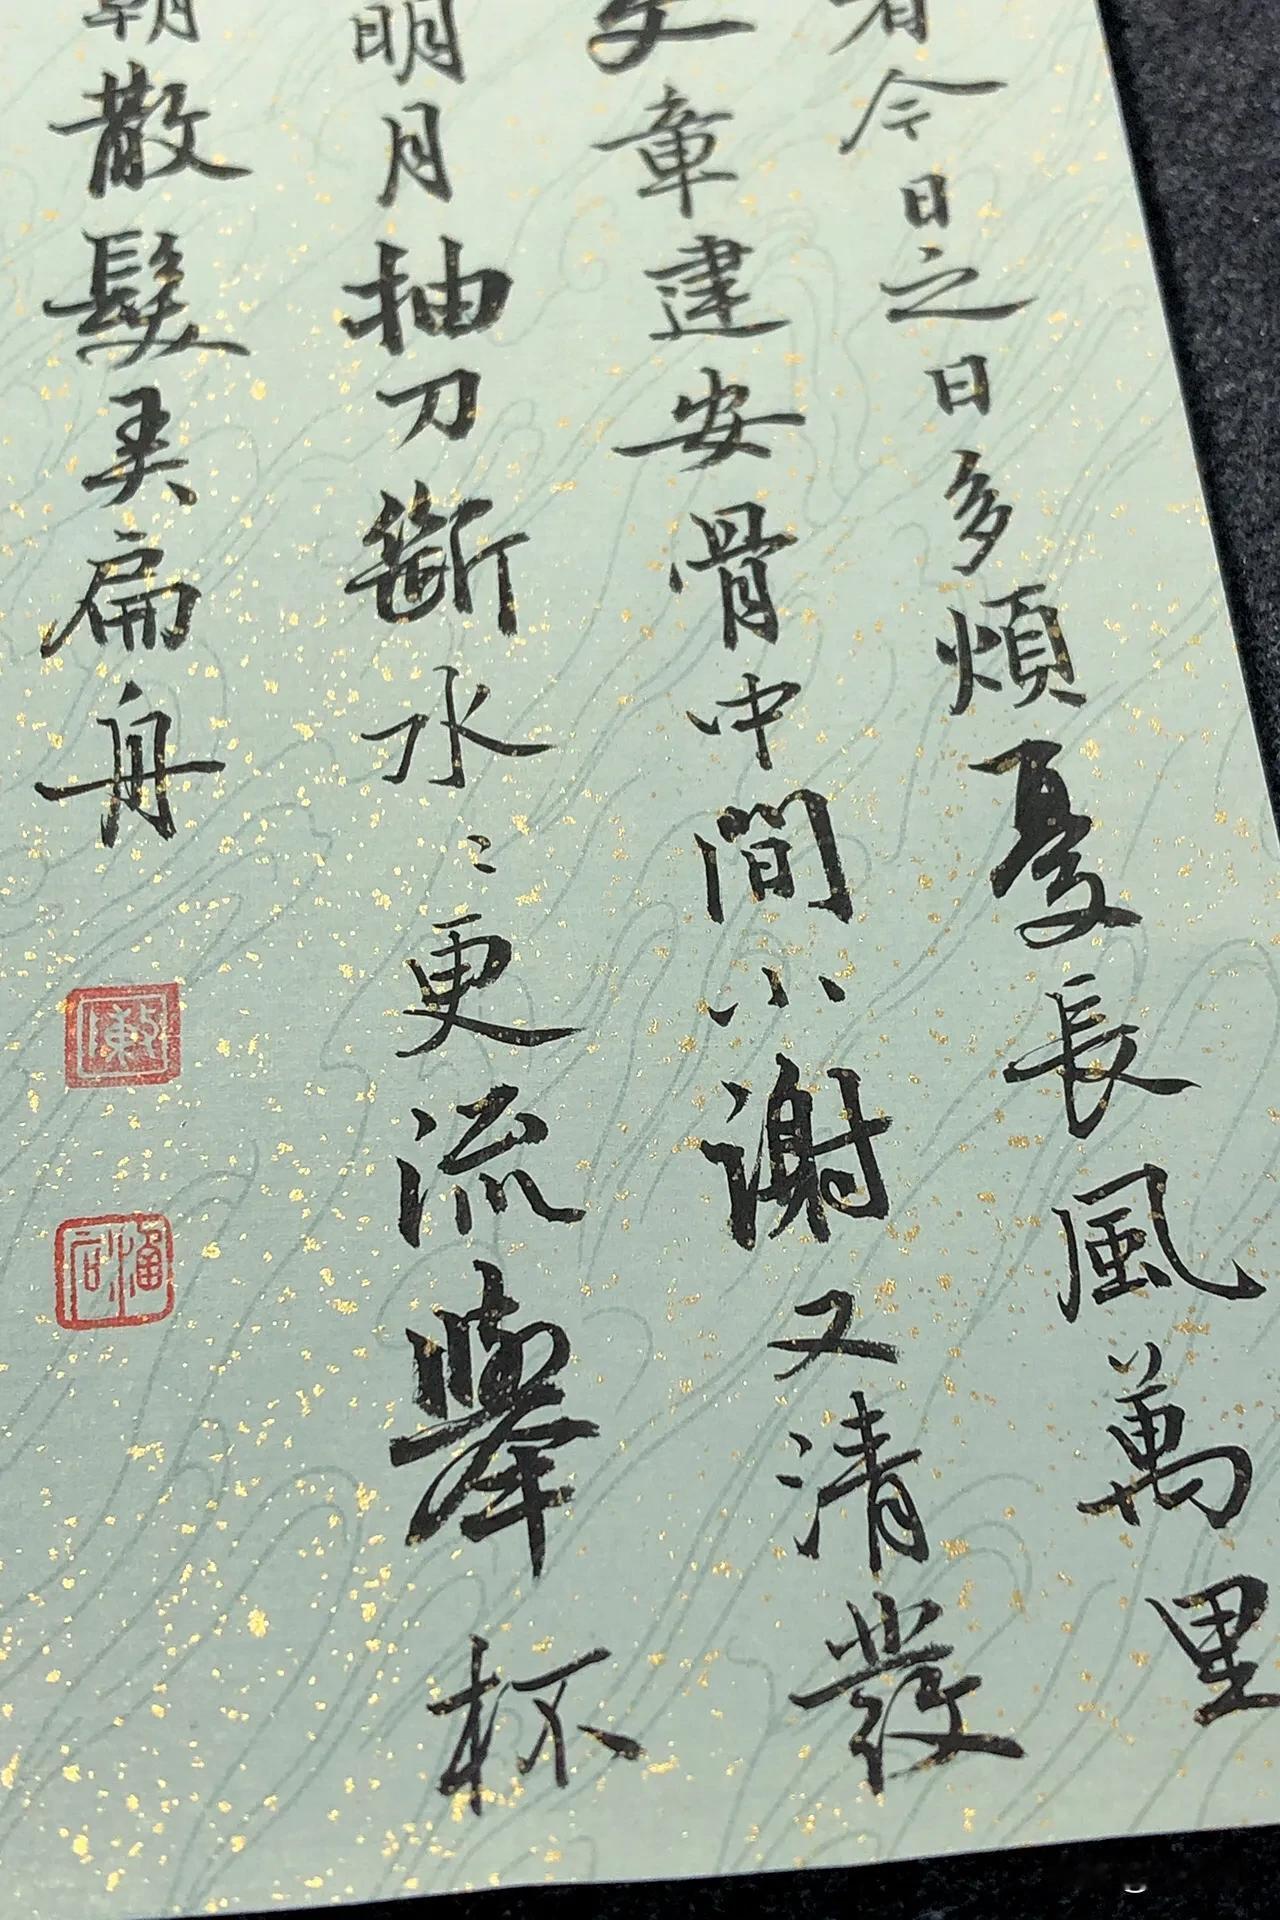 者今日之日多煩憂長風萬里
文章建安骨中間小謝又清發
明月抽刀斷水〻更流舉杯
朝散髮弄扁舟